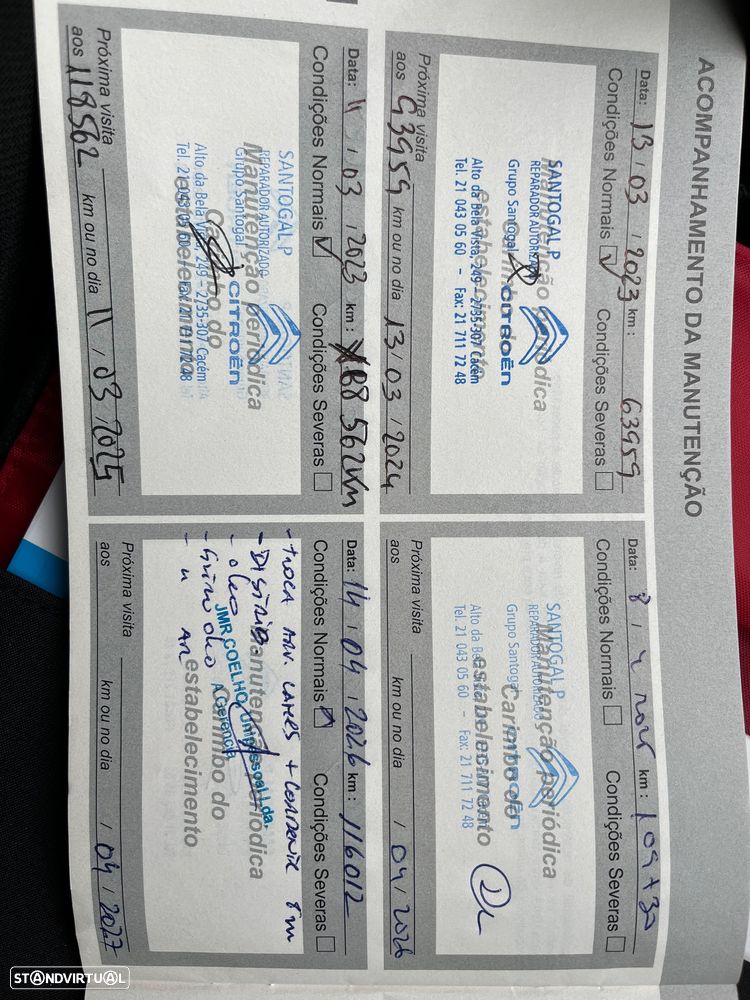 ACOMPANHAMENTO DA MANUTENÇÃO
Data: 13 / 03 / 2023 km: 63959
Condições Normais ✓ Condições Severas
Manutenção periódica
Carimbo do
estabelecimento
SANTOGAL P
REPARADOR AUTORIZADO
Grupo Santogal
CITROËN
Alto da Bela Vista, 249 – 2735-307 Cacém
Tel. 21 043 05 60 – Fax: 21 711 72 48
Próxima visita
aos 93959 km ou no dia 13 / 03 / 2024
Data: 8 / / km:
Condições Normais Condições Severas
Manutenção periódica
Carimbo do
estabelecimento
SANTOGAL P
REPARADOR AUTORIZADO
Grupo Santogal
Alto da Bela Vista, 249 – 2735-307 Cacém
Tel. 21 043 05 60 – Fax: 21 711 72 48
Próxima visita
aos km ou no dia / 04 / 2026
Data: 11 / 03 / 2023 km: 88 562 km
Condições Normais ✓ Condições Severas
Manutenção periódica
Carimbo do
estabelecimento
SANTOGAL P
REPARADOR AUTORIZADO
Grupo Santogal
CITROËN
Alto da Bela Vista, 249 – 2735-307 Cacém
Tel. 21 043 05 60 Fax: 21 711 72 48
Próxima visita
aos 118562 km ou no dia 11 / 03 2025
Data: 14 / 04 / 2026 km: 116012
Condições Normais ✓ Condições Severas
Manutenção periódica
Carimbo do
estabelecimento
- troca
- oleo
- oleo
- " AR
JMR COELHO, Unipessoal Lda.
A Gerência
Próxima visita
aos km ou no dia / 04 / 2027
STANDVIRTUAL